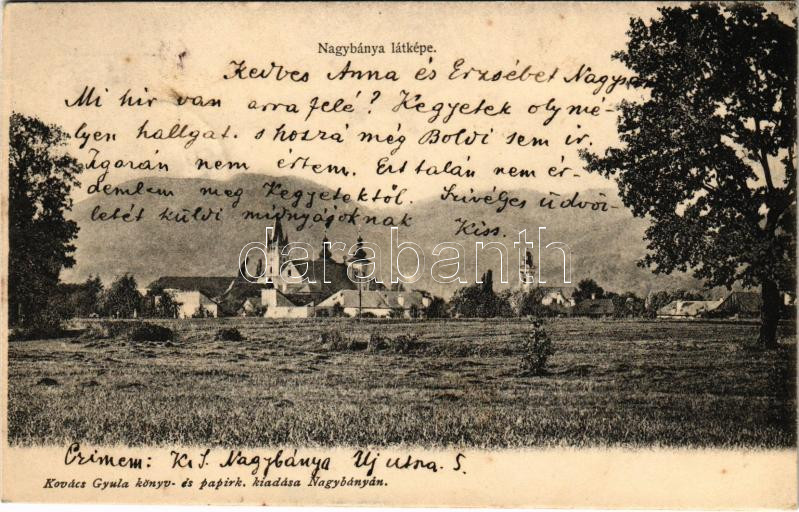 Nagybánya látképe.
Kedves Anna és Erzsébet
Mi hir van arra felé? Kegyetek oly mé-
lyen hallgat. s hozzá még Boldi sem ir.
Igazán nem értem. Ezt talán nem ér-
demlem meg Kegyetektől. Szivélyes üdvöz-
letét küldi midnyájoknak Kiss.
darabanth
Czimem: K. S. Nagybánya Uj utsza 5.
Kovács Gyula könyv- és papirk. kiadása Nagybányán.